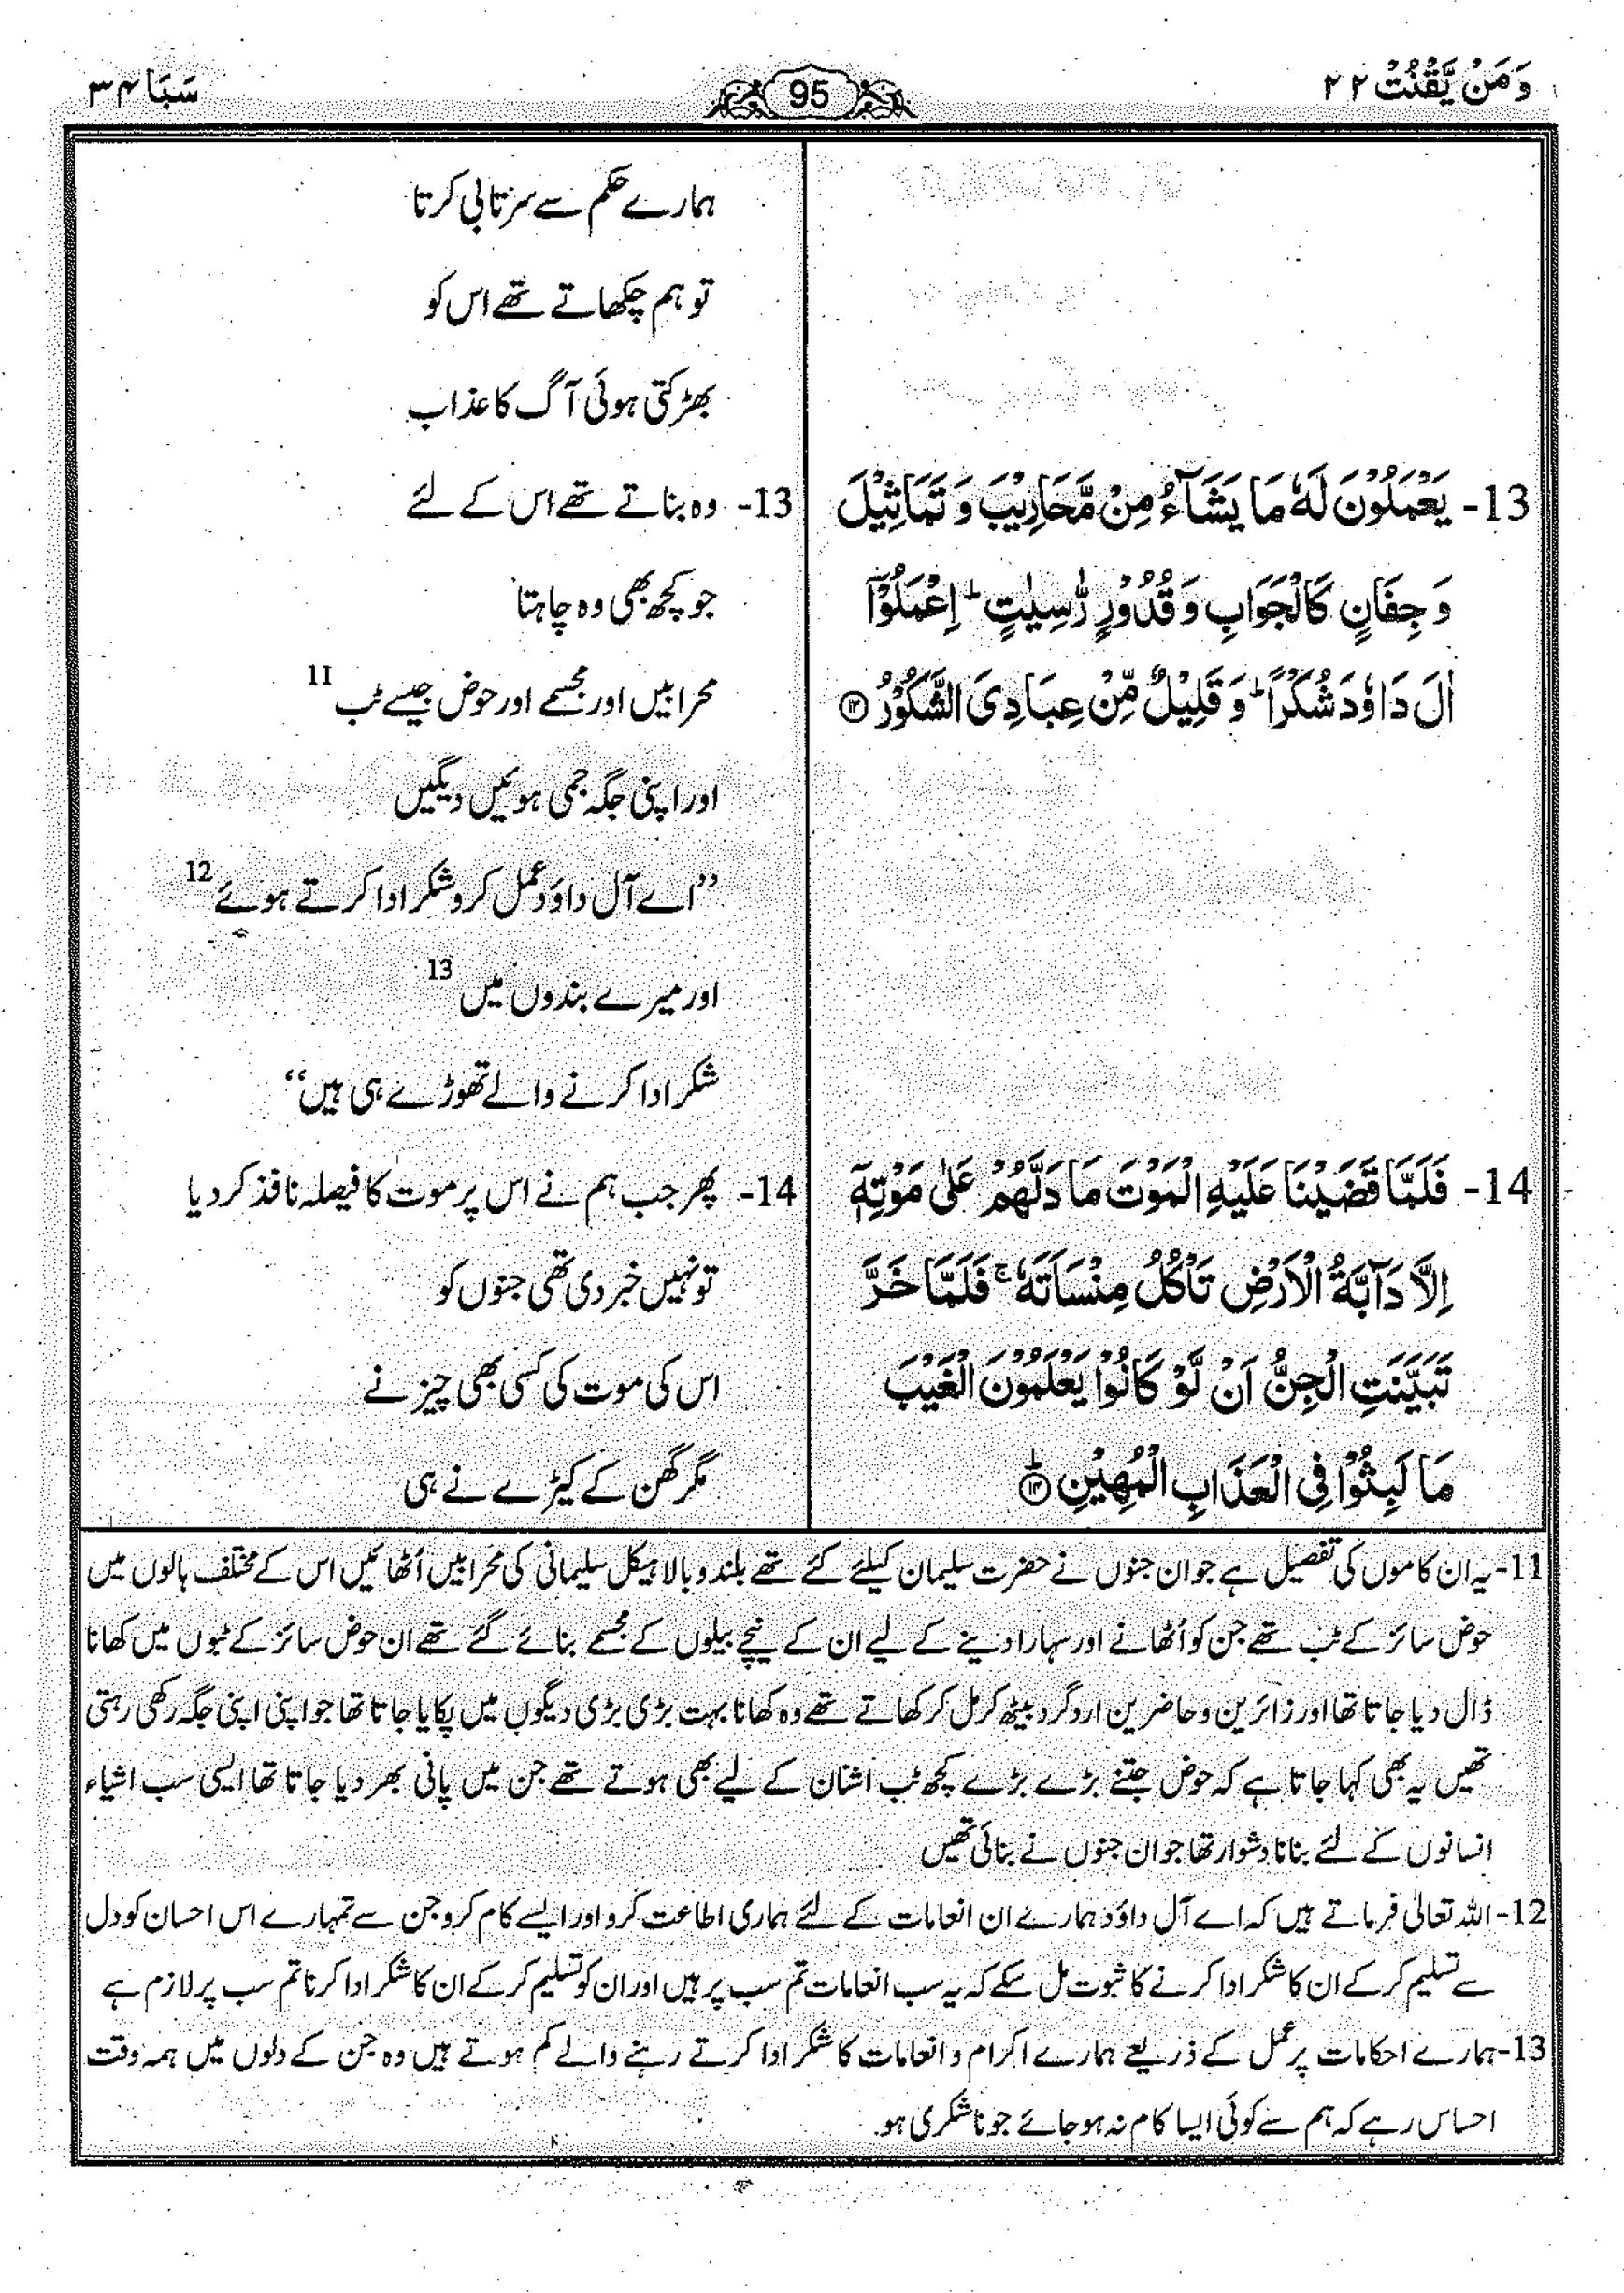 وَمَنْ يَّقْنُتْ ۲۲
95
سَبَا ۳۴
ہمارے حکم سے سرتابی کرتا
تو ہم چکھاتے تھے اس کو
بھڑکتی ہوئی آگ کا عذاب
13- يَعْمَلُوْنَ لَهٗ مَا يَشَآءُ مِنْ مَّحَارِيْبَ وَ تَمَاثِيْلَ
وَ جِفَانٍ كَالْجَوَابِ وَ قُدُوْرٍ رّٰسِيٰتٍ ؕ اِعْمَلُوْٓا
اٰلَ دَاوٗدَ شُكْرًا ؕ وَ قَلِيْلٌ مِّنْ عِبَادِيَ الشَّكُوْرُ ⑬
13- وہ بناتے تھے اس کے لئے
جو کچھ بھی وہ چاہتا
محرابیں اور مجسمے اور حوض جیسے ٹب 11
اور اپنی جگہ جمی ہوئیں دیگیں
’’اے آل داؤد عمل کرو شکر ادا کرتے ہوئے 12
اور میرے بندوں میں 13
شکر ادا کرنے والے تھوڑے ہی ہیں‘‘
14- فَلَمَّا قَضَيْنَا عَلَيْهِ الْمَوْتَ مَا دَلَّهُمْ عَلٰى مَوْتِهٖٓ
اِلَّا دَآبَّةُ الْاَرْضِ تَاْكُلُ مِنْسَاَتَهٗ ۚ فَلَمَّا خَرَّ
تَبَيَّنَتِ الْجِنُّ اَنْ لَّوْ كَانُوْا يَعْلَمُوْنَ الْغَيْبَ
مَا لَبِثُوْا فِي الْعَذَابِ الْمُهِيْنِ ؕ ⑭
14- پھر جب ہم نے اس پر موت کا فیصلہ نافذ کر دیا
تو نہیں خبر دی تھی جنوں کو
اس کی موت کی کسی بھی چیز نے
مگر گھن کے کیڑے نے ہی
11- یہ ان کاموں کی تفصیل ہے جو ان جنوں نے حضرت سلیمان کیلئے کئے تھے بلند و بالا ہیکل سلیمانی کی محرابیں اُٹھائیں اس کے مختلف ہالوں میں
حوض سائز کے ٹب تھے جن کو اُٹھانے اور سہارا دینے کے لیے ان کے نیچے بیلوں کے مجسمے بنائے گئے تھے ان حوض سائز کے ٹبوں میں کھانا
ڈال دیا جاتا تھا اور زائرین و حاضرین ارد گرد بیٹھ کر مل کر کھاتے تھے وہ کھانا بہت بڑی بڑی دیگوں میں پکایا جاتا تھا جو اپنی اپنی جگہ رکھی رہتی
تھیں یہ بھی کہا جاتا ہے کہ حوض جتنے بڑے بڑے کچھ ٹب اشنان کے لیے بھی ہوتے تھے جن میں پانی بھر دیا جاتا تھا ایسی سب اشیاء
انسانوں کے لئے بنانا دشوار تھا جو ان جنوں نے بنائی تھیں
12- اللہ تعالیٰ فرماتے ہیں کہ اے آل داؤد ہمارے ان انعامات کے لئے ہماری اطاعت کرو اور ایسے کام کرو جن سے تمہارے اس احسان کو دل
سے تسلیم کر کے ان کا شکر ادا کرنے کا ثبوت مل سکے کہ یہ سب انعامات تم سب پر ہیں اور ان کو تسلیم کر کے ان کا شکر ادا کرنا تم سب پر لازم ہے
13- ہمارے احکامات پر عمل کے ذریعے ہمارے اکرام و انعامات کا شکر ادا کرتے رہنے والے کم ہوتے ہیں وہ جن کے دلوں میں ہمہ وقت
احساس رہے کہ ہم سے کوئی ایسا کام نہ ہو جائے جو ناشکری ہو.